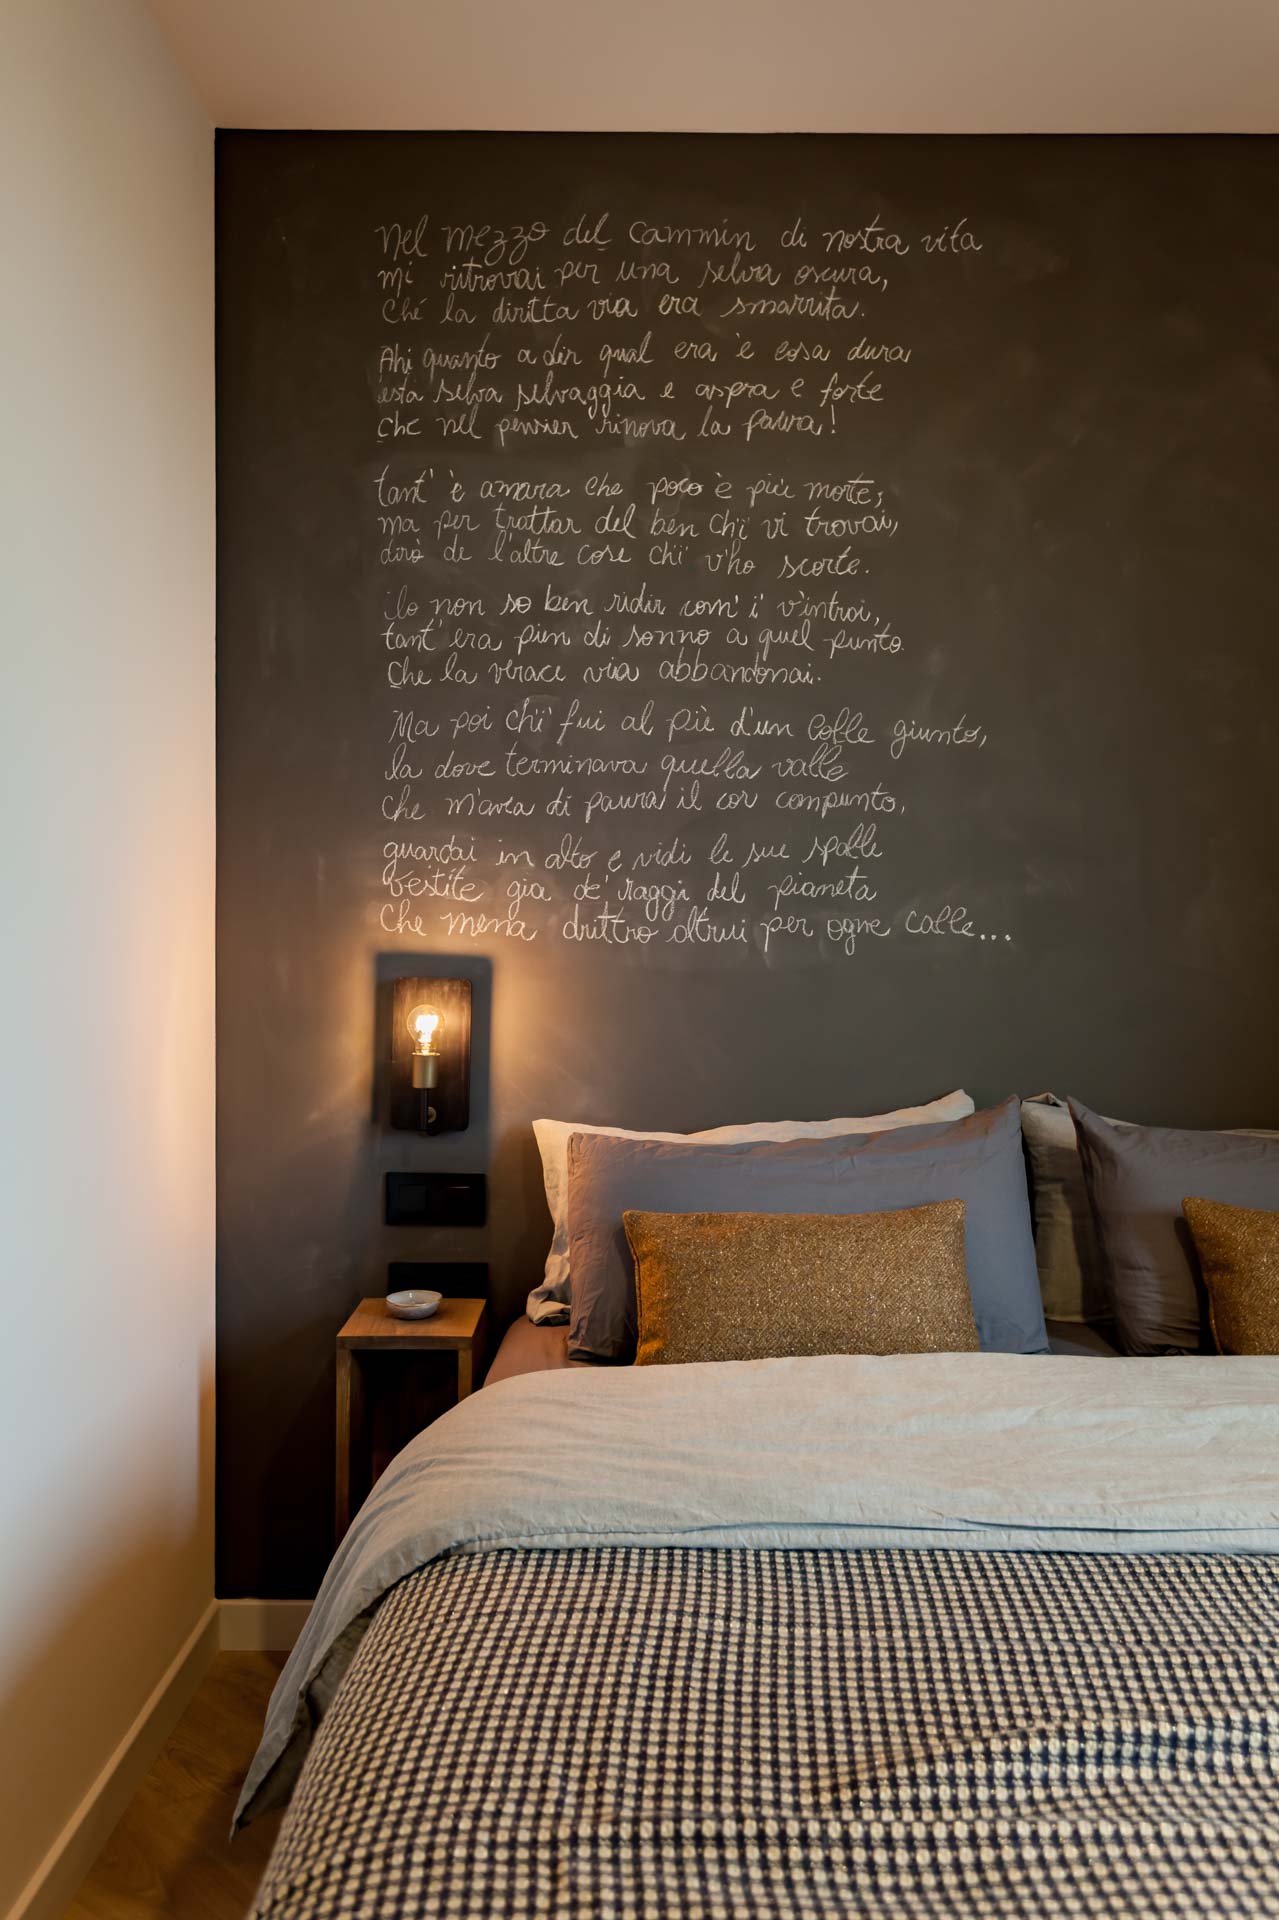 Nel mezzo del cammin di nostra vita
mi ritrovai per una selva oscura,
Ché la diritta via era smarrita.
Ahi quanto a dir qual era è cosa dura
esta selva selvaggia e aspra e forte
che nel pensier rinova la paura!
tant' è amara che poco è più morte;
ma per trattar del ben ch'i' vi trovai,
dirò de l'altre cose ch'i' v'ho scorte.
Io non so ben ridir com' i' v'intrai,
tant' era pien di sonno a quel punto
Che la verace via abbandonai.
Ma poi ch'i' fui al piè d'un colle giunto,
la dove terminava quella valle
che m'avea di paura il cor compunto,
guardai in alto e vidi le sue spalle
Vestite gia de' raggi del pianeta
Che mena drittro altrui per ogne calle...